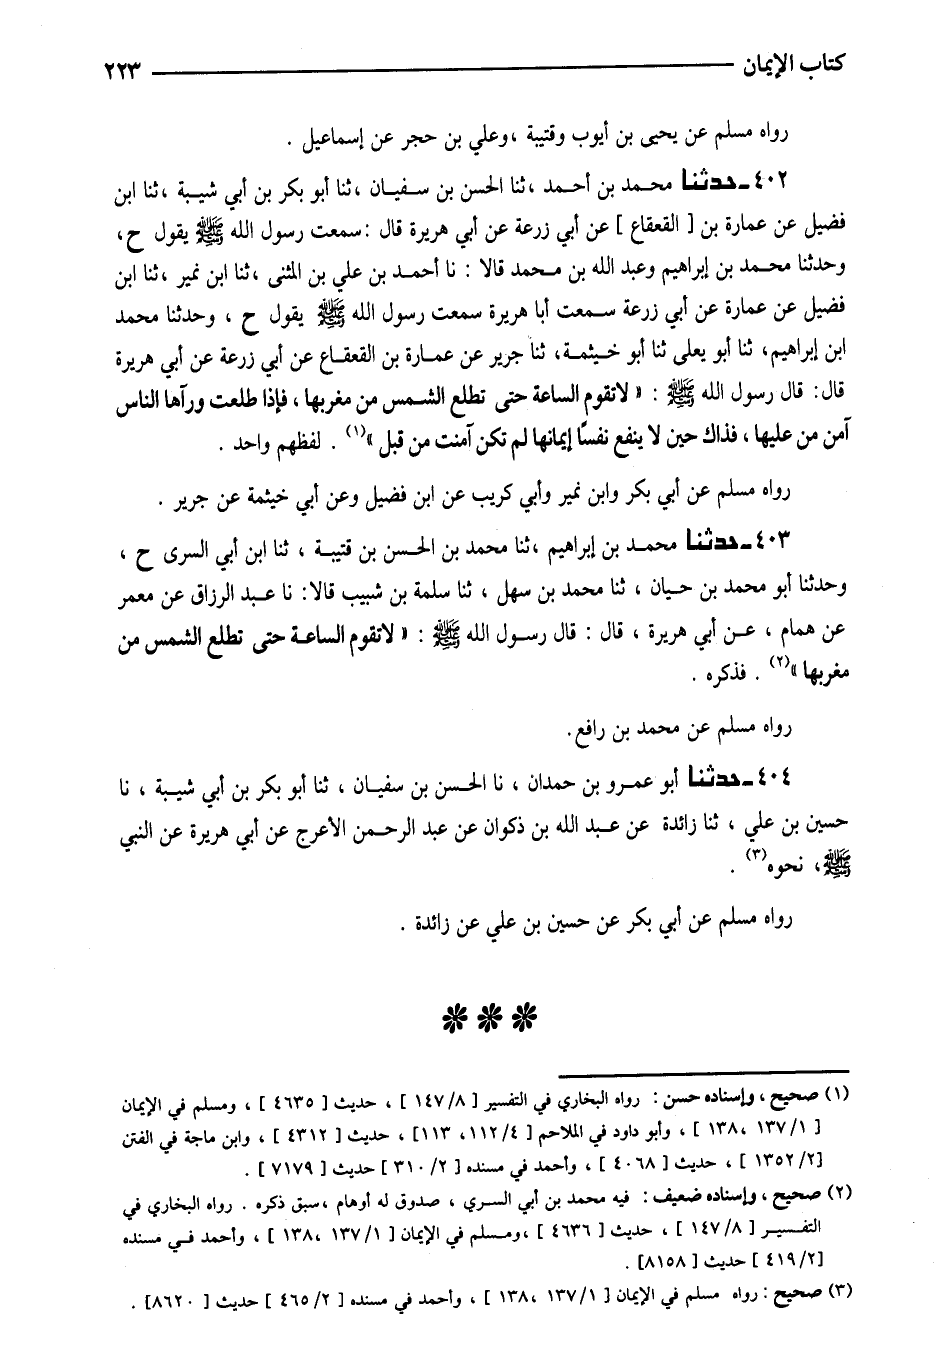 كتاب الإيمان ٢٢٣
رواه مسلم عن يحيى بن أيوب وقتيبة ،وعلي بن حجر عن إسماعيل .
٤٠٢ـحدثنا محمد بن أحمد ،ثنا الحسن بن سفيان ،ثنا أبو بكر بن أبي شيبة ،ثنا ابن
فضيل عن عمارة بن [ القعقاع ] عن أبي زرعة عن أبي هريرة قال :سمعت رسول الله ﷺ يقول ح،
وحدثنا محمد بن إبراهيم وعبد الله بن محمد قالا : نا أحمد بن علي بن المثنى ،ثنا ابن نمير ،ثنا ابن
فضيل عن عمارة عن أبي زرعة سمعت أبا هريرة سمعت رسول الله ﷺ يقول ح ، وحدثنا محمد
ابن إبراهيم، ثنا أبو يعلى ثنا أبو خيثمة، ثنا جرير عن عمارة بن القعقاع عن أبي زرعة عن أبي هريرة
قال: قال رسول الله ﷺ : « لاتقوم الساعة حتى تطلع الشمس من مغربها ، فإذا طلعت ورآها الناس
آمن من عليها ، فذاك حين لا ينفع نفسًا إيمانها لم تكن آمنت من قبل »(١) . لفظهم واحد .
رواه مسلم عن أبي بكر وابن نمير وأبي كريب عن ابن فضيل وعن أبي خيثمة عن جرير .
٤٠٣ـحدثنا محمد بن إبراهيم ،ثنا محمد بن الحسن بن قتيبة ، ثنا ابن أبي السرى ح ،
وحدثنا أبو محمد بن حيان ، ثنا محمد بن سهل ، ثنا سلمة بن شبيب قالا: نا عبد الرزاق عن معمر
عن همام ، عن أبي هريرة ، قال : قال رسول الله ﷺ : « لاتقوم الساعة حتى تطلع الشمس من
مغربها »(٢) . فذكره .
رواه مسلم عن محمد بن رافع.
٤٠٤ـحدثنا أبو عمرو بن حمدان ، نا الحسن بن سفيان ، ثنا أبو بكر بن أبي شيبة ، نا
حسين بن علي ، ثنا زائدة عن عبد الله بن ذكوان عن عبد الرحمن الأعرج عن أبي هريرة عن النبي
ﷺ، نحوه(٣) .
رواه مسلم عن أبي بكر عن حسين بن علي عن زائدة .
(١) صحيح ، وإسناده حسن : رواه البخاري في التفسير [ ١٤٧/٨ ] ، حديث [ ٤٦٣٥ ] ، ومسلم في الإيمان
[ ١٣٧/١ ،١٣٨ ] ، وأبو داود في الملاحم [ ١١٢/٤، ١١٣] ، حديث [ ٤٣١٢ ] ، وابن ماجة في الفتن
[١٣٥٢/٢ ] ، حديث [ ٤٠٦٨ ] ، وأحمد في مسنده [ ٣١٠/٢ ] حديث [ ٧١٧٩ ] .
(٢) صحيح ، وإسناده ضعيف : فيه محمد بن أبي السري ، صدوق له أوهام ،سبق ذكره . رواه البخاري في
التفسير [ ١٤٧/٨ ] ، حديث [ ٤٦٣٦ ] ،ومسلم في الإيمان [ ١٣٧/١ ،١٣٨ ] ، وأحمد في مسنده
[٤١٩/٢ ] حديث [ ٨١٥٨] .
(٣) صحيح : رواه مسلم في الإيمان [ ١٣٧/١ ،١٣٨ ] ، وأحمد في مسنده [ ٤٦٥/٢ ] حديث [ ٨٦٢٠] .